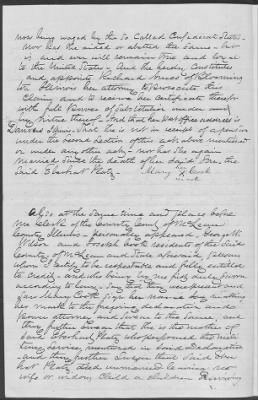 now being waged by the So Called Confederate States.
Nor has she aided or abetted the same - but
is and ever will remain true and loyal
to the United States - And she hereby Constitutes
and appoints Richard of Blooming
ton Illinois her attorney to prosecute this
Claim, and to receive her certificate therefor
with full Powers of Substitution under and
by virtue thereof. And that her Post office address is
Danvers Illinois. That he is not in receipt of a pension
under the second Section of the act above mentioned
or under any other act - nor has she again
married since the death of her said Son, the
Said Eberhart
Mary X Cook
mark
Also at the Same time and place before
me Clerk of the County Court of McLean
County Illinois personally appeared
Wilson and residents of the Said
County of McLean and State aforesaid, persons
whom I certify to be respectable and fully entitled
to Credit - and who being by me first duly Sworn
according to law, Say that they were present and
Saw Mary Cook Sign her name by making
her mark to the foregoing declaration and
power attorney and Swear to the Same, and
they further Swear that She is the mother of
Said Eberhart who performed the mili
tary Service, mentioned in Said Declaration
- and they further Swear that Said Eber
hart died unmarried leaving no
wife or widow, Child or Children Surviving